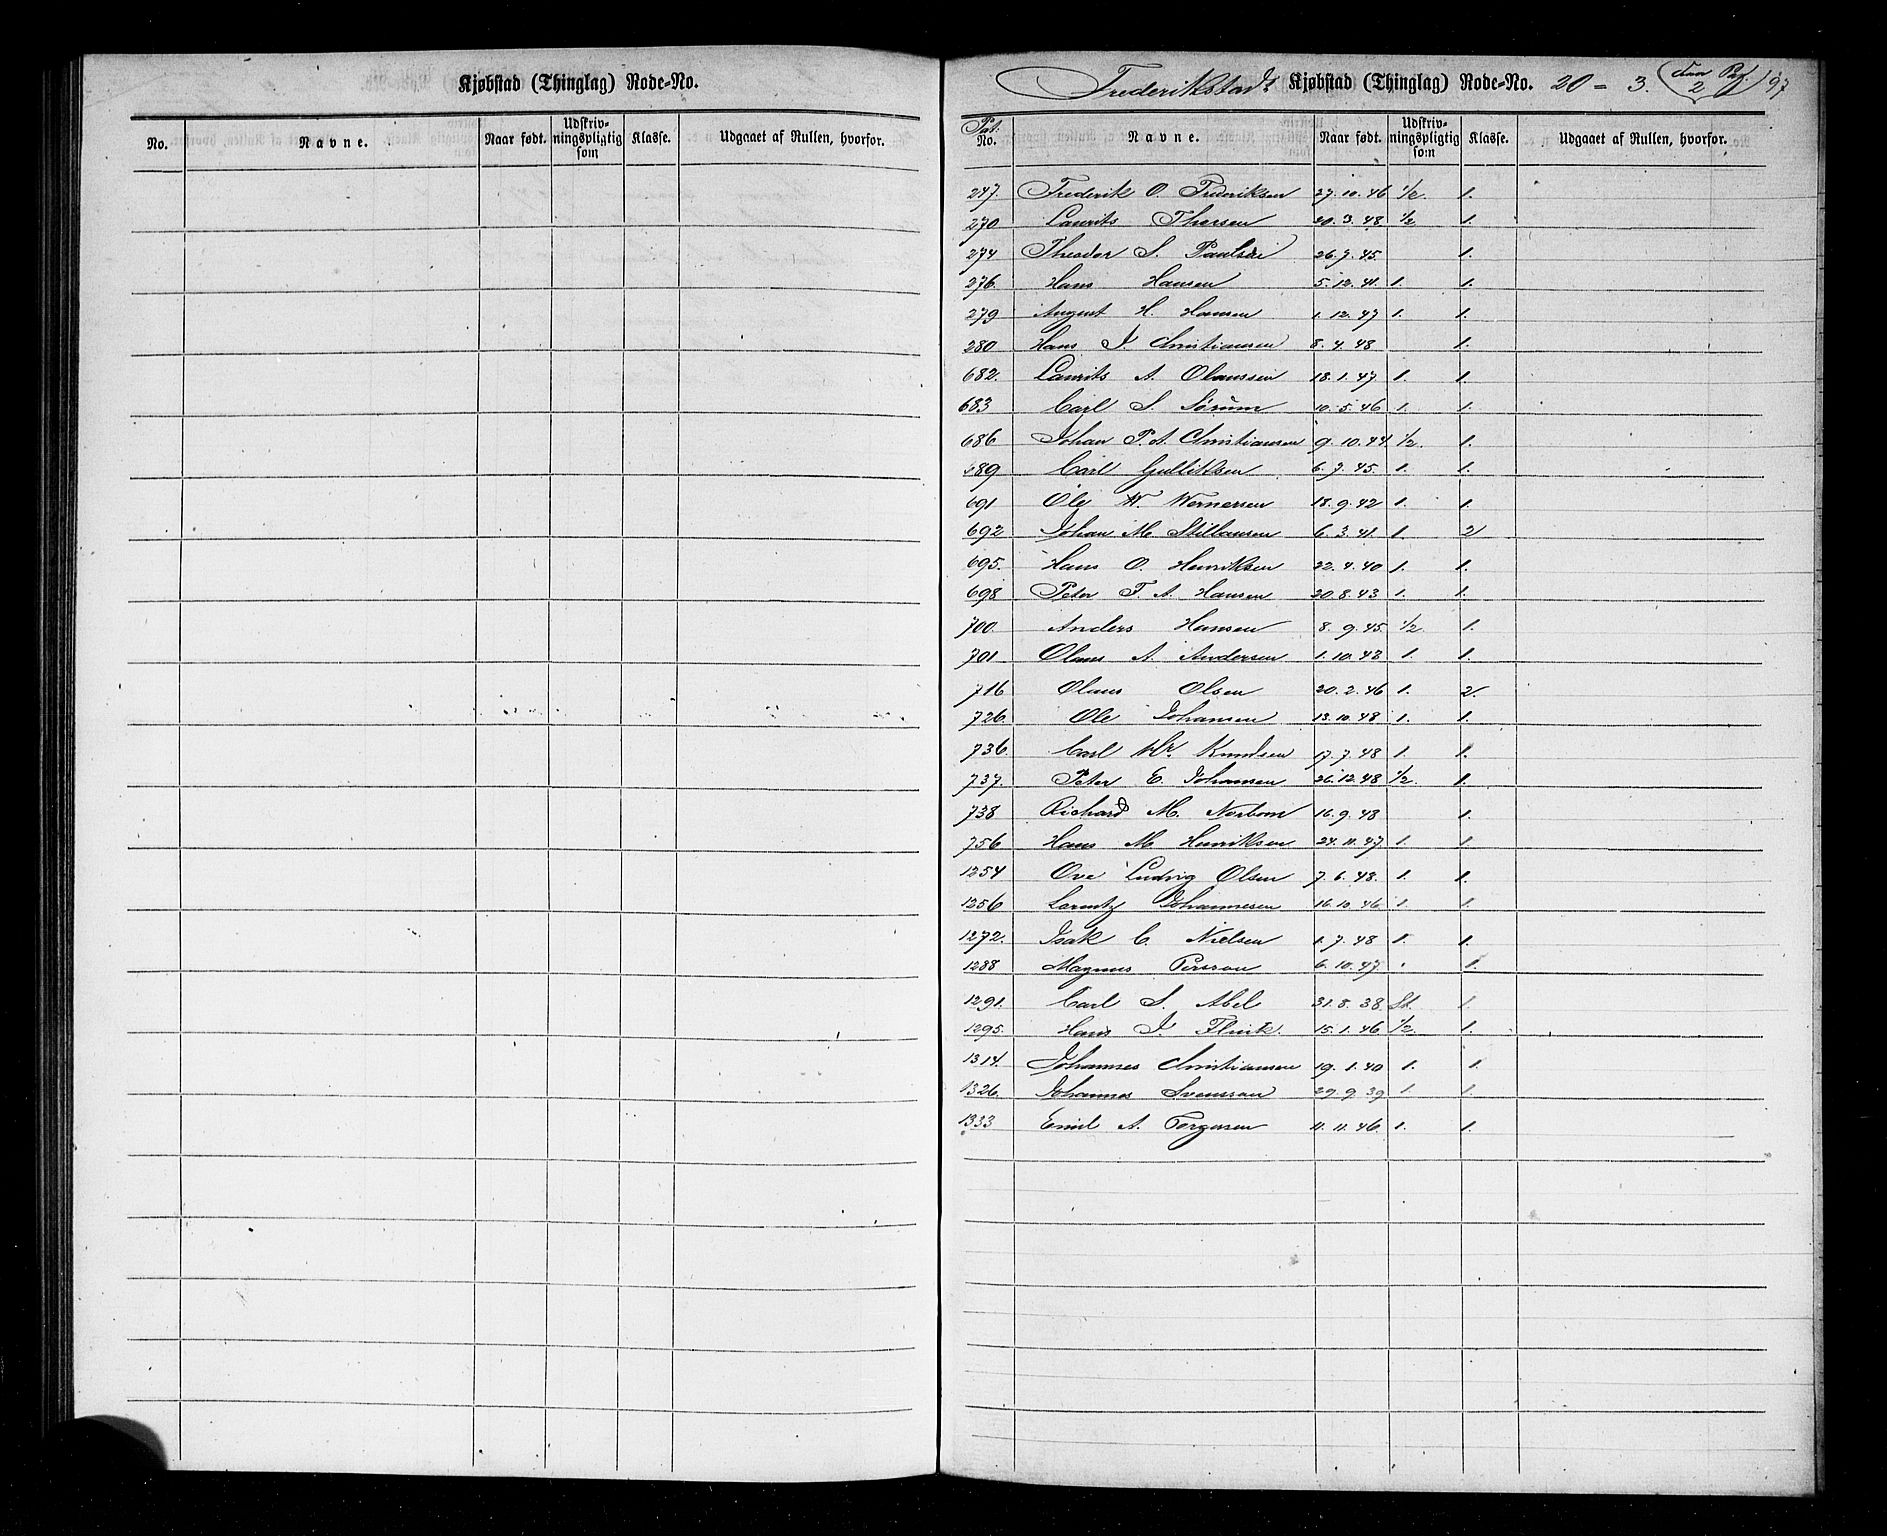 Kjøbstad (Thinglag) Rode-No.
No. Navne. Naar født. Udskriv-ningspligtig som Klasse. Udgaaet af Rullen, hvorfor.
Frederikstads Kjøbstad (Thinglag) Rode-No. 20 - 3. 2 97
Pat. No. Navne. Naar født. Udskriv-ningspligtig som Klasse. Udgaaet af Rullen, hvorfor.
247. Frederik O. Frederiksen 27.10.46 1/2. 1.
270 Laurits Thorsen 20.3.48 1/2 1.
274 Theodor S. Paulsen 26.7.45. 1.
276. Hans Hansen 5.12.41. 1. 1.
279 August H. Hansen 1.12.47 1. 1.
280 Hans J. Christiansen 8.4.48 1.
682. Laurits A. Olaussen 18.1.47 1. 1.
683 Carl S. Sørum 10.5.46 1. 1.
686 Johan P.A. Christiansen 9.10.44 1/2. 1.
689 Carl Gulliksen 6.7.45. 1. 1.
691 Ole W. Wernersen 18.9.42 1. 1.
692 Johan M. Stillausen 6.3.41. 1. 2
695. Hans O. Henriksen 22.4.40 1. 1.
698 Peter F. A. Hansen 20.8.43 1. 1.
700. Anders Hansen 8.9.45. 1/2. 1.
701 Olaus A. Andersen 1.10.43 1. 1.
716 Olaus Olsen 20.2.46 1. 2.
726. Ole Johansen 13.10.48 1. 1.
736. Carl Knudsen 17.7.48 1. 1.
737. Peter E. Johansen 26.12.48 1/2. 1.
738 Richard M. Norbom 16.9.48 1.
756 Hans M Henriksen 24.11.47 1. 1.
1254 Ove Ludvig Olsen 7.6.48. 1. 1.
1256 Lorentz Johannesen 16.10.46 1. 1.
1272. Isak C. Nielsen 1.7.48 1. 1.
1288 Magnus Persson 6.10.47. 1.
1291. Carl S. Abel 31.8.38 St. 1.
1295. Hans J. Flink. 15.1.46 1/2. 1.
1314. Johannes Christiansen 19.1.40 1. 1.
1326. Johannes Svensson 29.9.39 1. 1.
1333 Emil A. Torgersen 11.11.46. 1. 1.